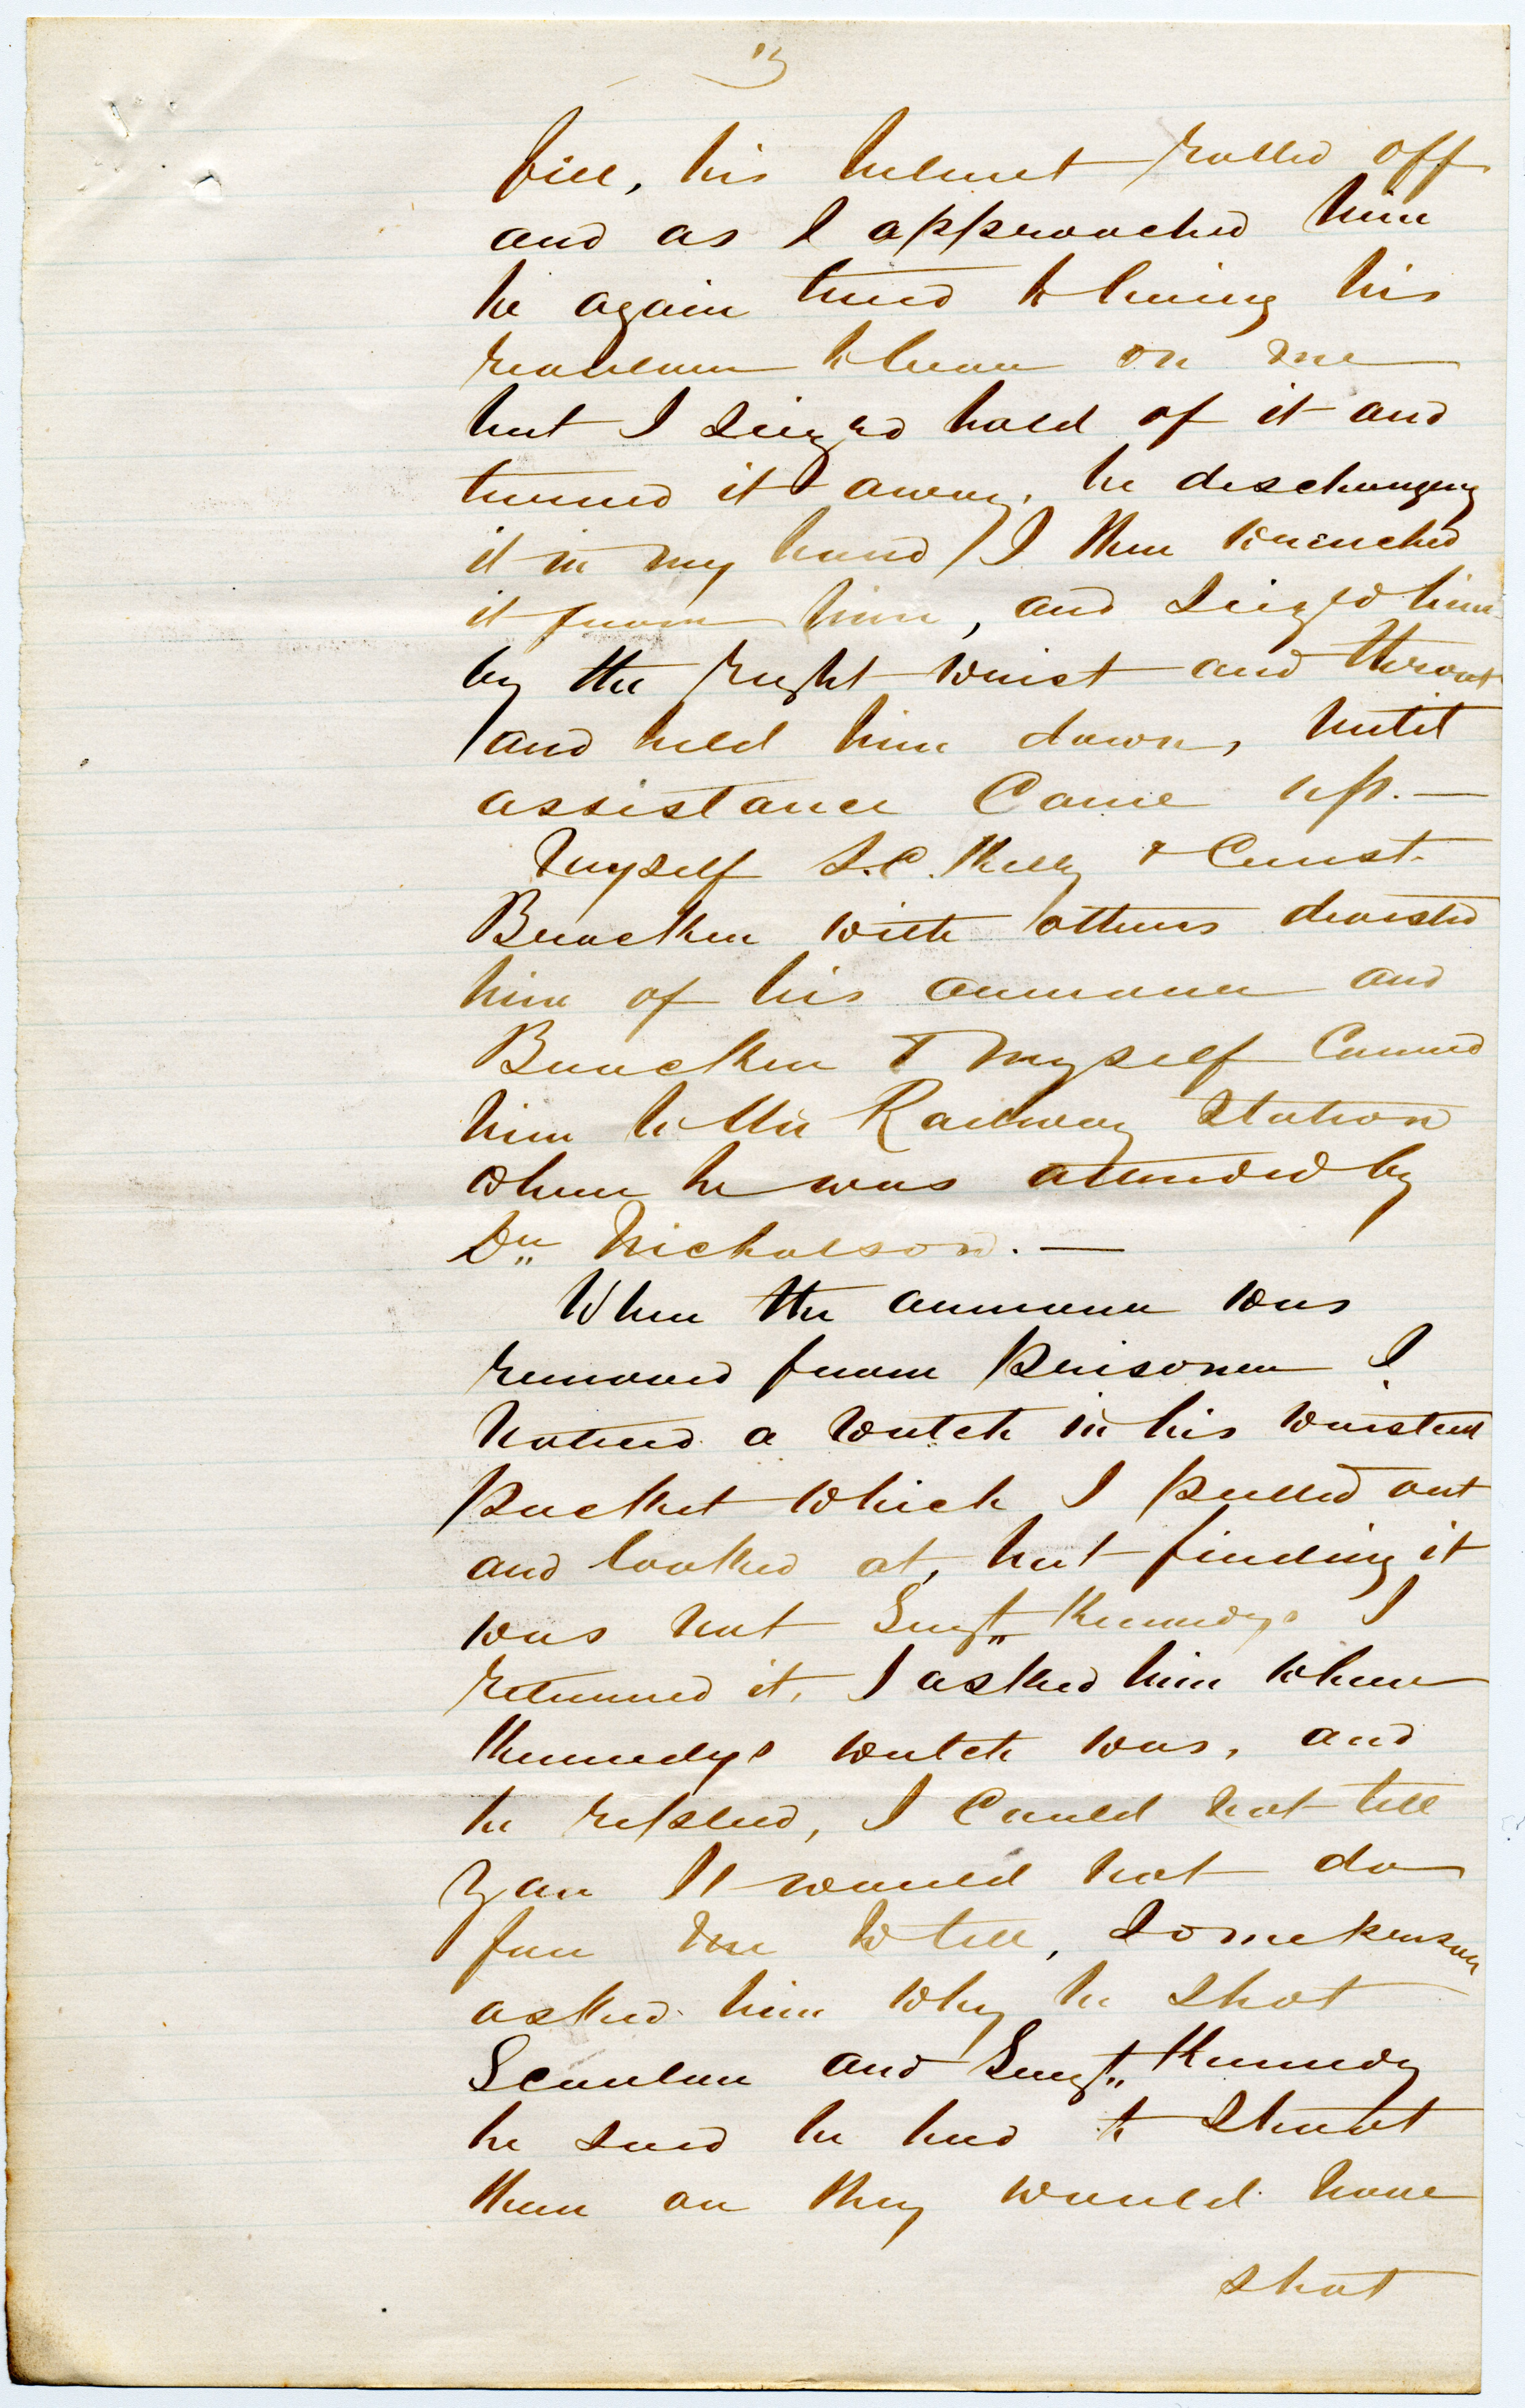 3
fell, his helmet rolled off
and as I approached him
he again tried to bring his
revolver to bear on me
but I seized hold of it and
turned it away, he dischanging
it in my hand / I then wrenched
it from him, and seized him
by the right wrist and throat
and held him down, until
assistance came up. —
Myself S.C. Kelly & Const.
Bracken with others divested
him of his armour and
Bracken & myself carried
him to the Railway Station
where he was attended by
Dr. Nicholson. —
When the armour was
removed from prisoner I
noticed a watch in his waistcoat
pocket which I pulled out
and looked at, but finding it
was not Sergt. Kennedys I
returned it, I asked him where
Kennedys watch was, and
he replied, I could not tell
you It would not do
for me to tell, some person
asked him why he shot
Scanlan and Sergt. Kennedy
he said he had to shoot
them or they would have
shot